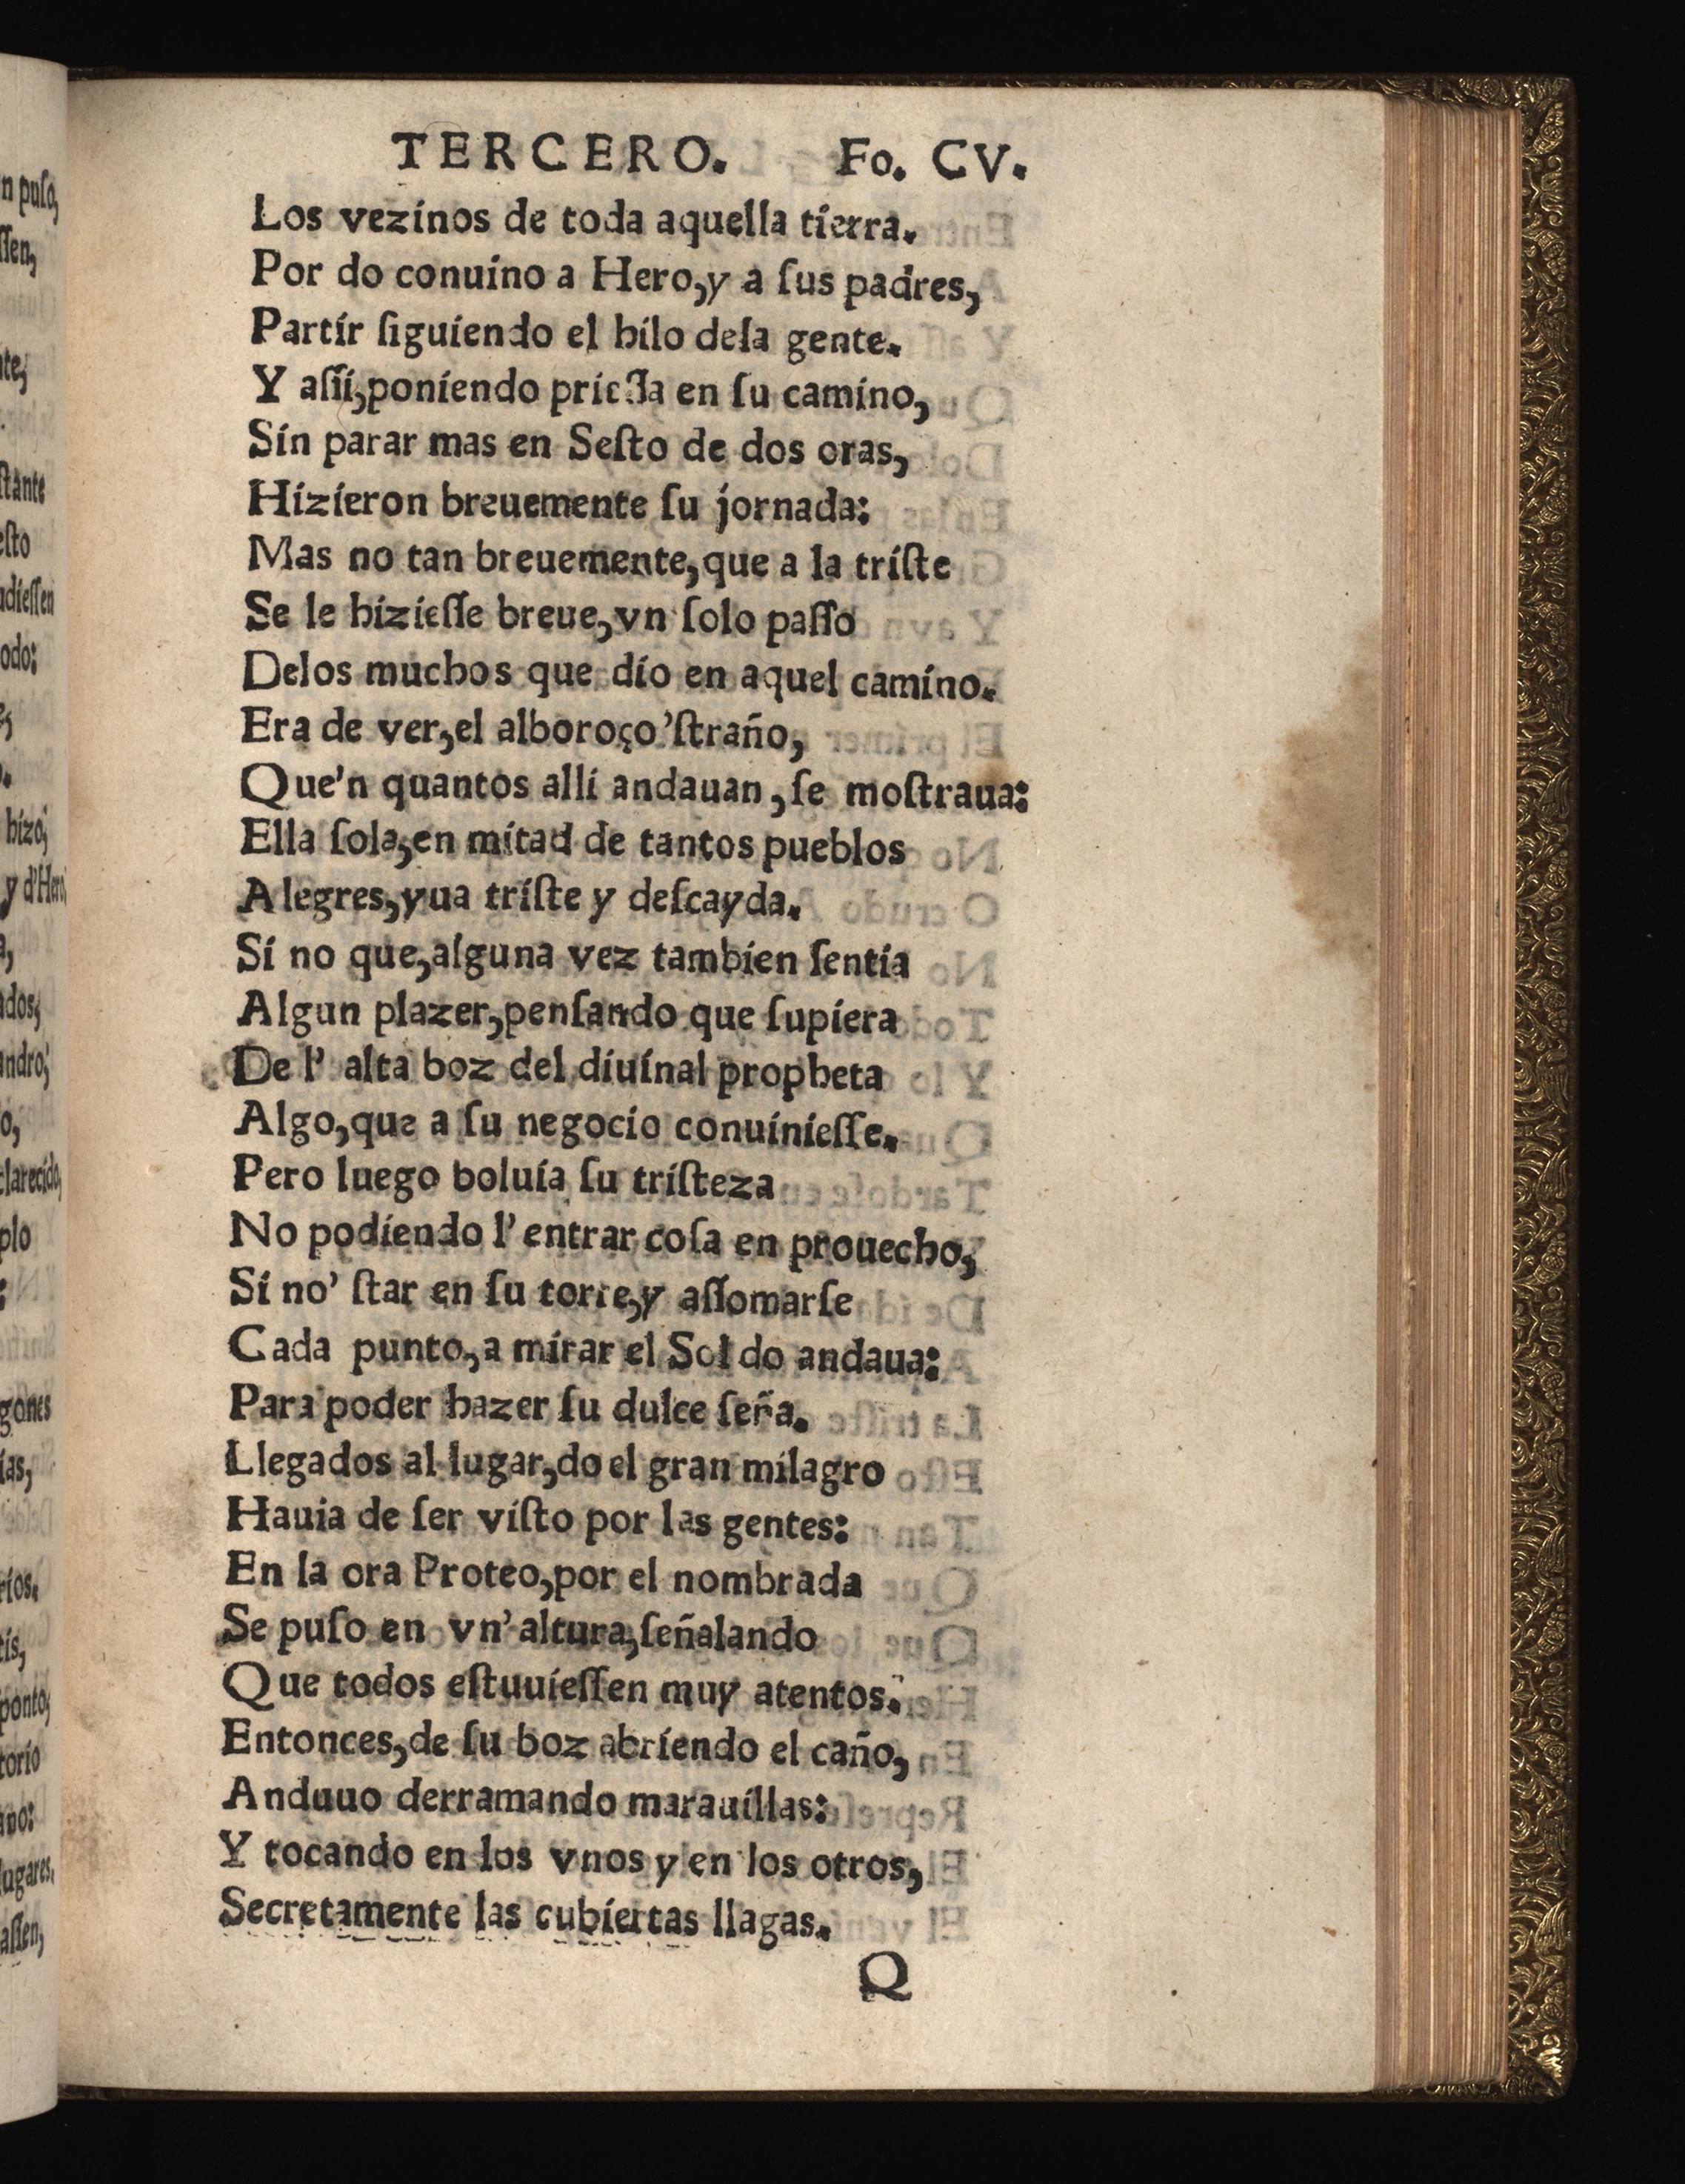 TERCERO. Fo. CV.
Los vezinos de toda aquella tierra.
Por do conuino a Hero,y a ſus padres,
Partir ſiguiendo el hilo deſa gente.
Y aſſi,poniendo prieſſa en ſu camino,
Sin parar mas en Seſto de dos oras,
Hizieron breuemente ſu jornada:
Mas no tan breuemente,que a la triſte
Se le hizieſſe breue,vn ſolo paſſo
Delos muchos que dio en aquel camino.
Era de ver,el alboroço'ſtraño,
Que'n quantos alli andauan,ſe moſtraua:
Ella ſola,en mitad de tantos pueblos
Alegres,yua triſte y deſcayda.
Si no que,alguna vez tambien ſentia
Algun plazer,penſando que ſupiera
De l' alta boz del diuinal propheta
Algo,que a ſu negocio conuinieſſe.
Pero luego boluia ſu triſteza
No podiendo l' entrar coſa en prouecho,
Si no' ſtar en ſu torre,y aſſomarſe
Cada punto,a mirar el Sol do andaua:
Para poder hazer ſu dulce ſeña.
Llegados al lugar,do el gran milagro
Hauia de ſer viſto por las gentes:
En la ora Proteo,por el nombrada
Se puſo en vn' altura,ſeñalando
Que todos eſtuuieſſen muy atentos.
Entonces,de ſu boz abriendo el caño,
Anduuo derramando marauillas:
Y tocando en los vnos y en los otros,
Secretamente las cubiertas llagas.
Q